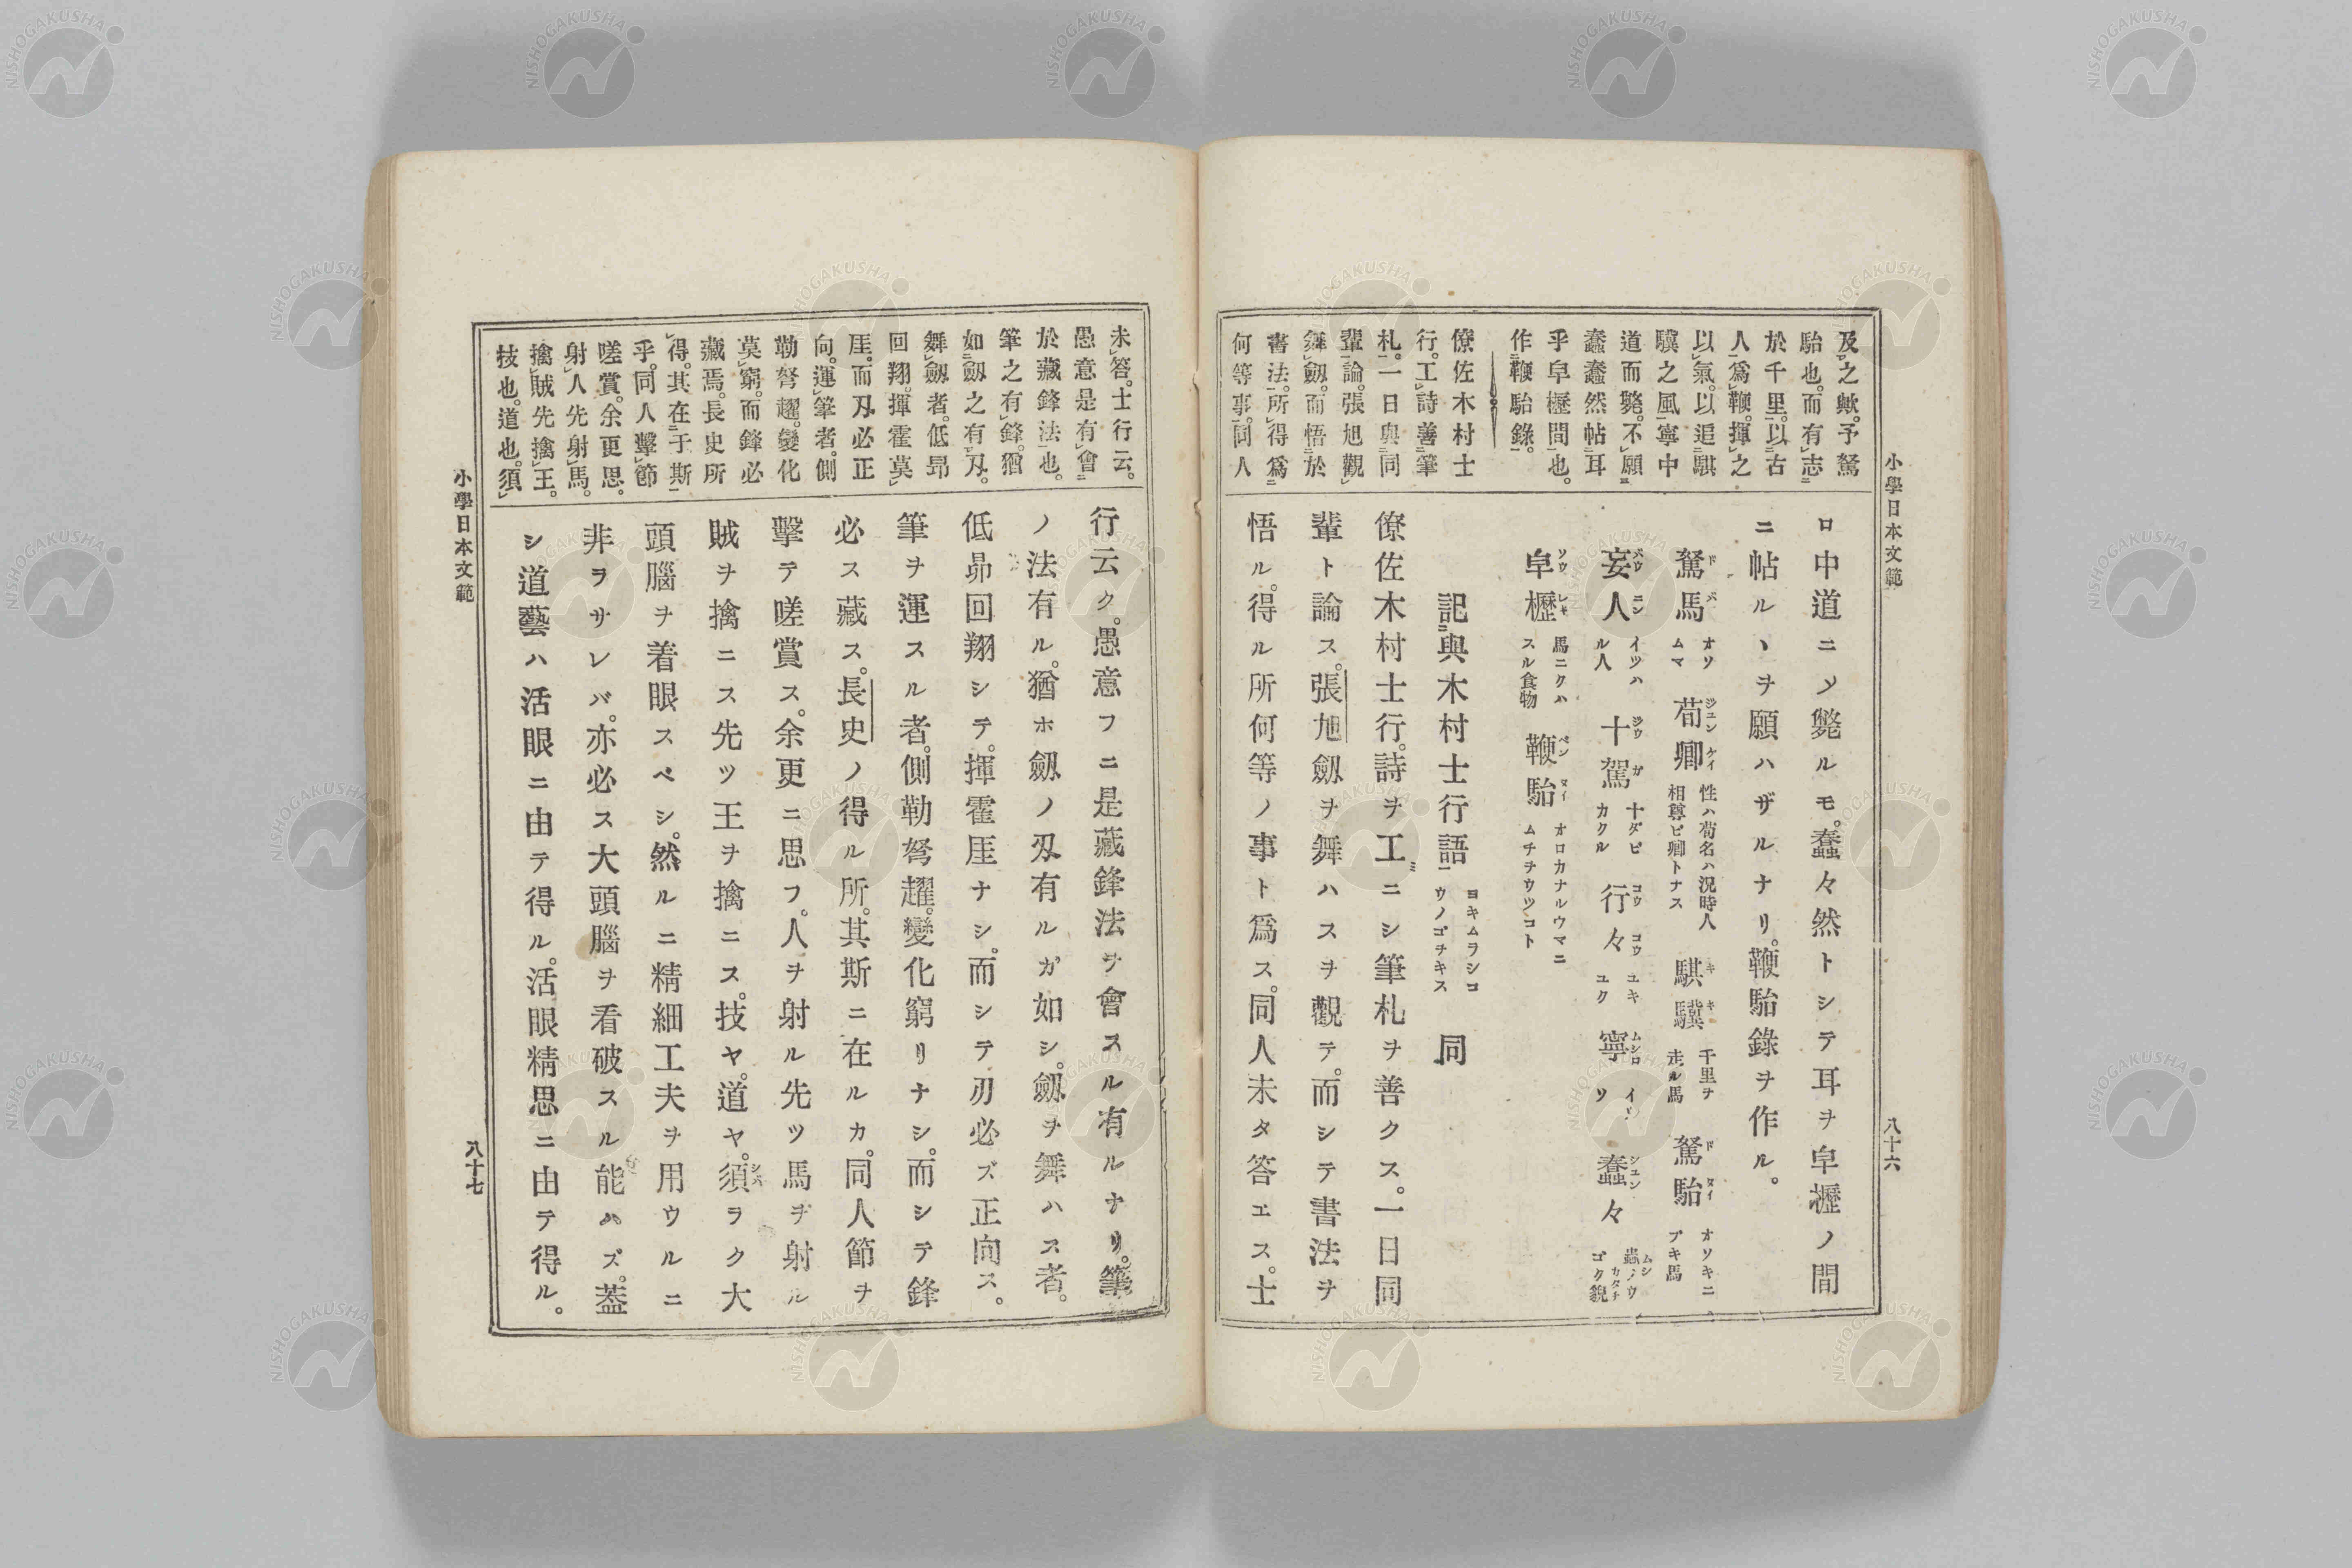 小學日本文範
八十六
及之歟。予駑
駘也。而有志
於千里。以古
人爲鞭。揮之
以氣。以追騏
驥之風。寧中
道而斃。不願
蠢蠢然帖耳
乎皁櫪間也。
作鞭駘錄。
僚佐木村士
行。工詩善筆
札。一日與同
輩論。張旭觀
舞劔。而悟於
書法。所得爲
何等事。同人
ロ中道ニシテ斃ルモ。蠢々然トシテ耳ヲ皁櫪ノ間
ニ帖ルヽヲ願ハザルナリ。鞭駘錄ヲ作ル。
駑馬 オソムマ 荀卿 性ハ荀名ハ況時人相尊ビ卿トナス 騏驥 千里ヲ走ル馬 駑駘 オソキニブキ馬
妄人 イツハル人 十駕 十タビカクル 行々 ユキユク 寧 イツソ 蠢々 蟲ノウゴク貌
皁櫪 馬ニクハスル食物 鞭駘 オロカナルウマニムチヲウツコト
記與木村士行語 ヨキムラシコウノゴヲキス 同
僚佐木村士行。詩ヲ工ニシ筆札ヲ善クス。一日同
輩ト論ス。張旭劔ヲ舞ハスヲ觀テ。而シテ書法ヲ
悟ル。得ル所何等ノ事ト爲ス。同人未タ答エス。士
未答。士行云。
愚意是有會
於藏鋒法也。
筆之有鋒。猶
如劔之有刄。
舞劔者。低昻
回翔。揮霍莫
厓。而刄必正
向。運筆者。側
勒努趯。變化
莫窮。而鋒必
藏焉。長史所
得。其在于斯
乎。同人擊節
嗟賞。余更思。
射人先射馬。
擒賊先擒王。
技也。道也。須
行云ク。愚意フニ是藏鋒法ヲ會スル有ルナリ。筆
ノ法有ル。猶ホ劔ノ刄有ルガ如シ。劔ヲ舞ハス者。
低昻回翔シテ。揮霍厓ナシ。而シテ刃必ズ正向ス。
筆ヲ運スル者。側勒努趯。變化窮リナシ。而シテ鋒
必ス藏ス。長史ノ得ル所。其斯ニ在ルカ。同人節ヲ
擊テ嗟賞ス。余更ニ思フ。人ヲ射ル先ツ馬ヲ射ル
賊ヲ擒ニス先ツ王ヲ擒ニス。技ヤ。道ヤ。須ラク大
頭腦ヲ着眼スベシ。然ルニ精細工夫ヲ用ウルニ
非ヲサレバ。亦必ス大頭腦ヲ看破スル能ハズ。葢
シ道藝ハ活眼ニ由テ得ル。活眼精思ニ由テ得ル。
小學日本文範
八十七